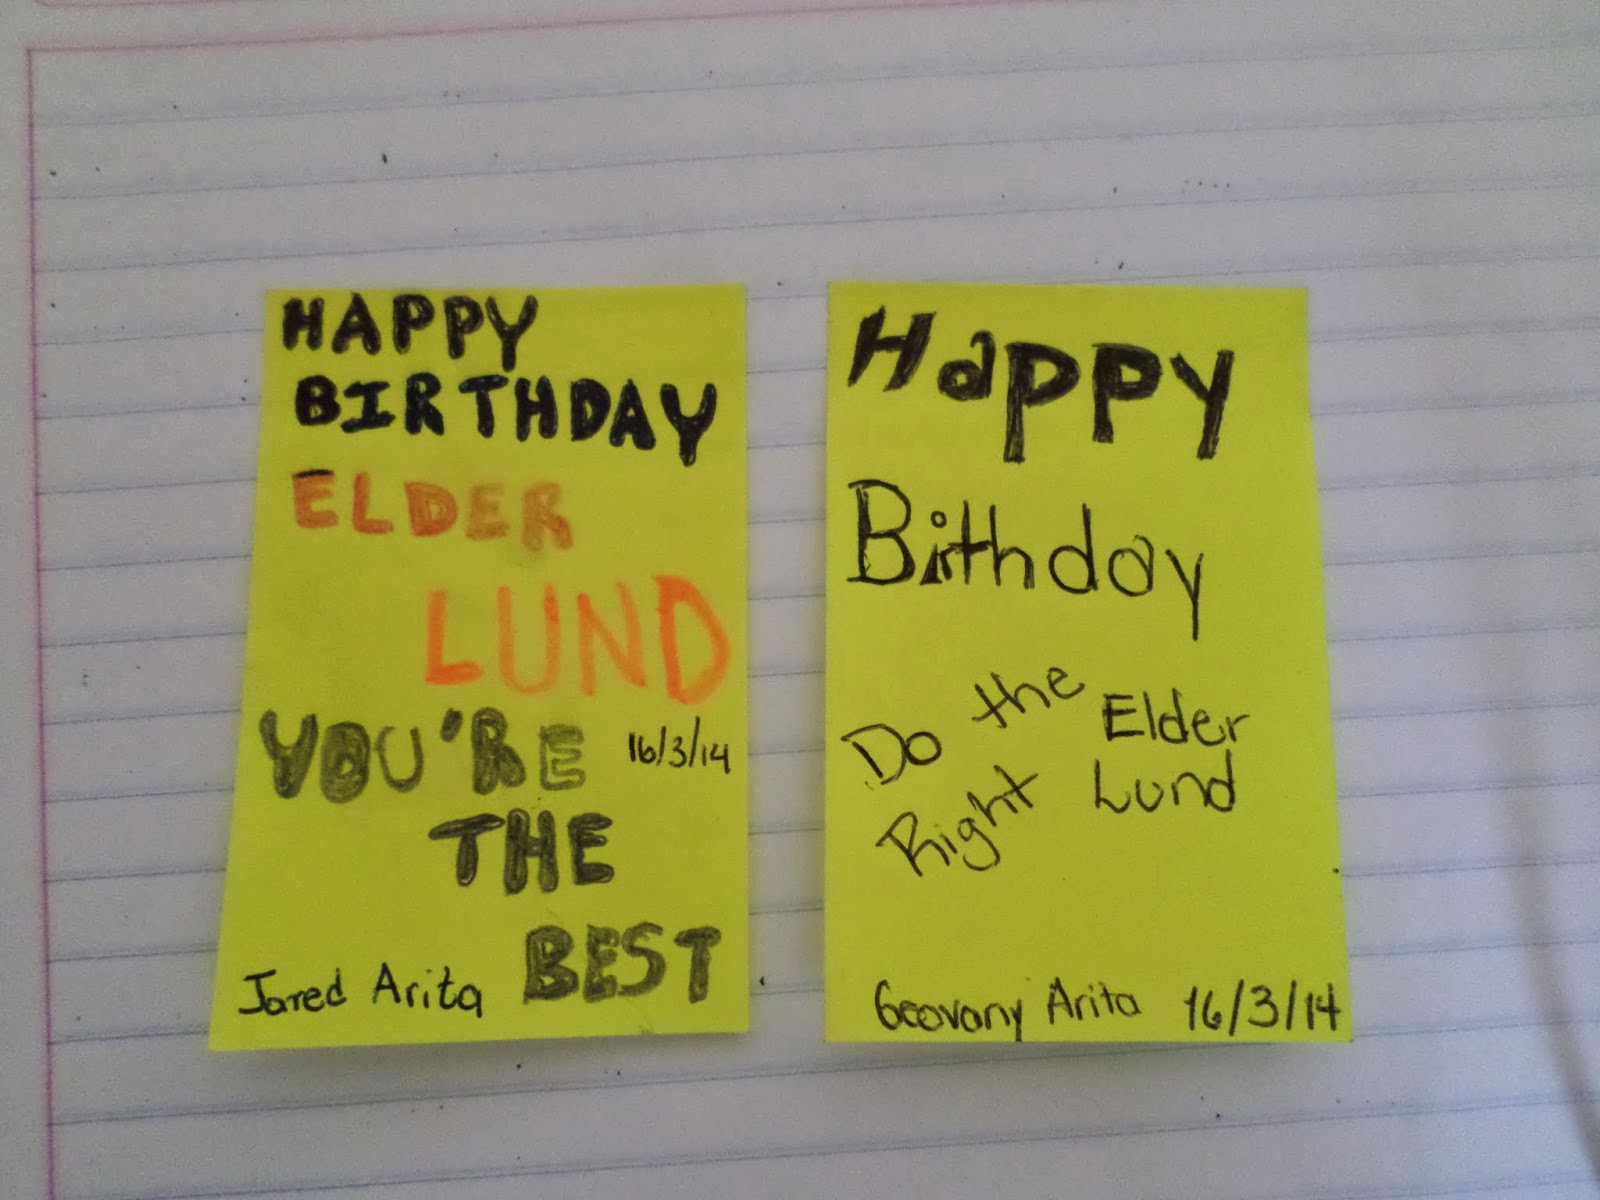 HAPPY
BIRTHDAY
ELDER
LUND
YOU'RE 16/3/14
THE
BEST
Jared Arita
Happy
Birthday
Do the
Right
Elder
Lund
Geovany Arita 16/3/14